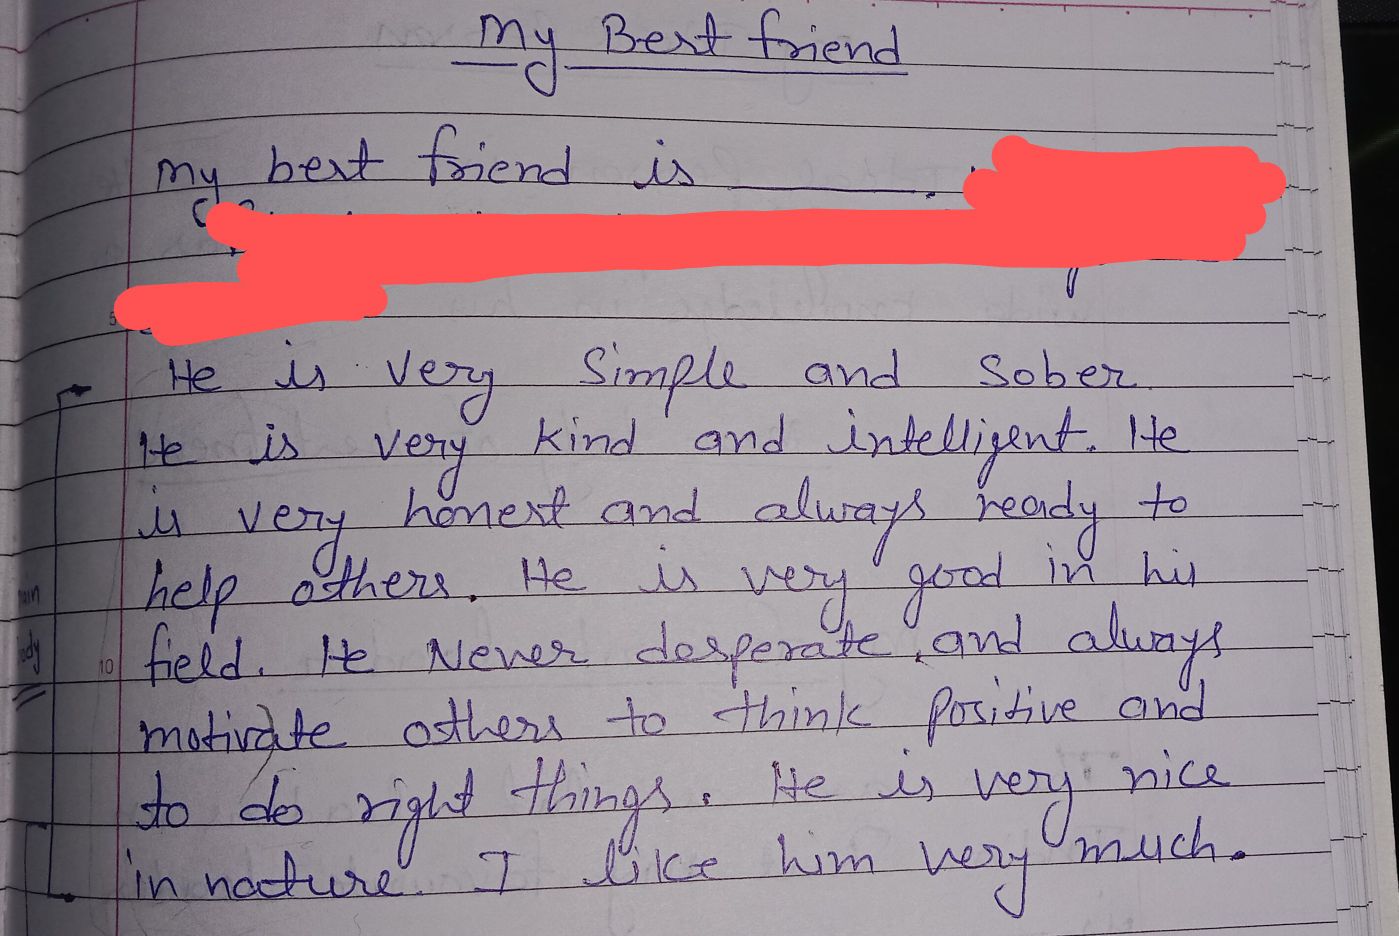 My Best friend
My best friend is ______.
He is very Simple and Sober.
He is very kind and intelligent. He
is very honest and always ready to
help others. He is very good in his
field. He Never desperate, and always
motivate others to think positive and
to do right things. He is very nice
in nature. I like him very much.
5
10